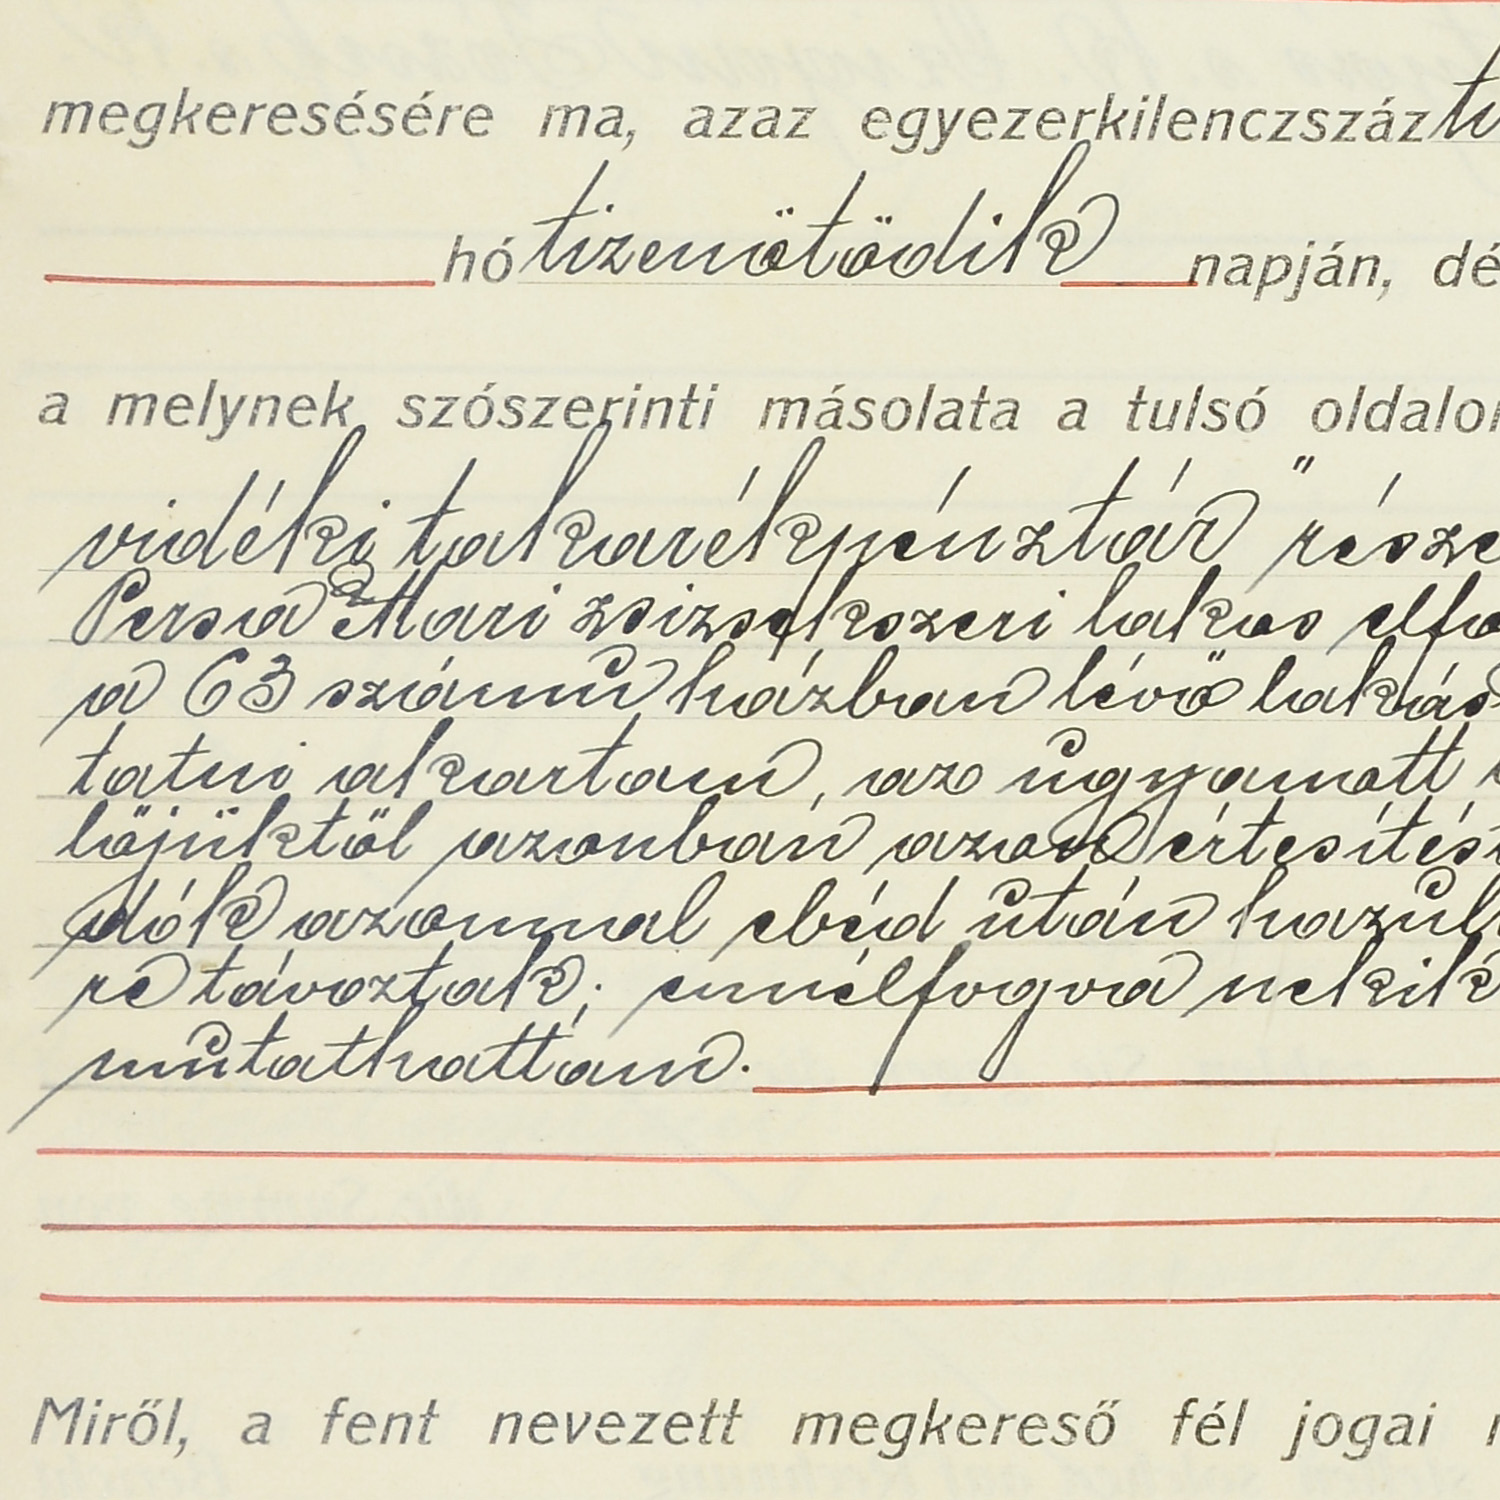 megkeresésére ma, azaz egyezerkilenczszáz
hó tizenötödik napján, dé
a melynek szószerinti másolata a tulsó oldalon
vidéki takarékpénztár" része
Persa Mari zsizsekszeri lakos elfo
a 63 számu házban lévö lakás
tatni akartam, az ugyanott
löjüktöl azonban azon értesítés
dók azonnal ebéd után hazul
re távoztak; ennélfogva nekik
mutathattam.
Miről, a fent nevezett megkereső fél jogai